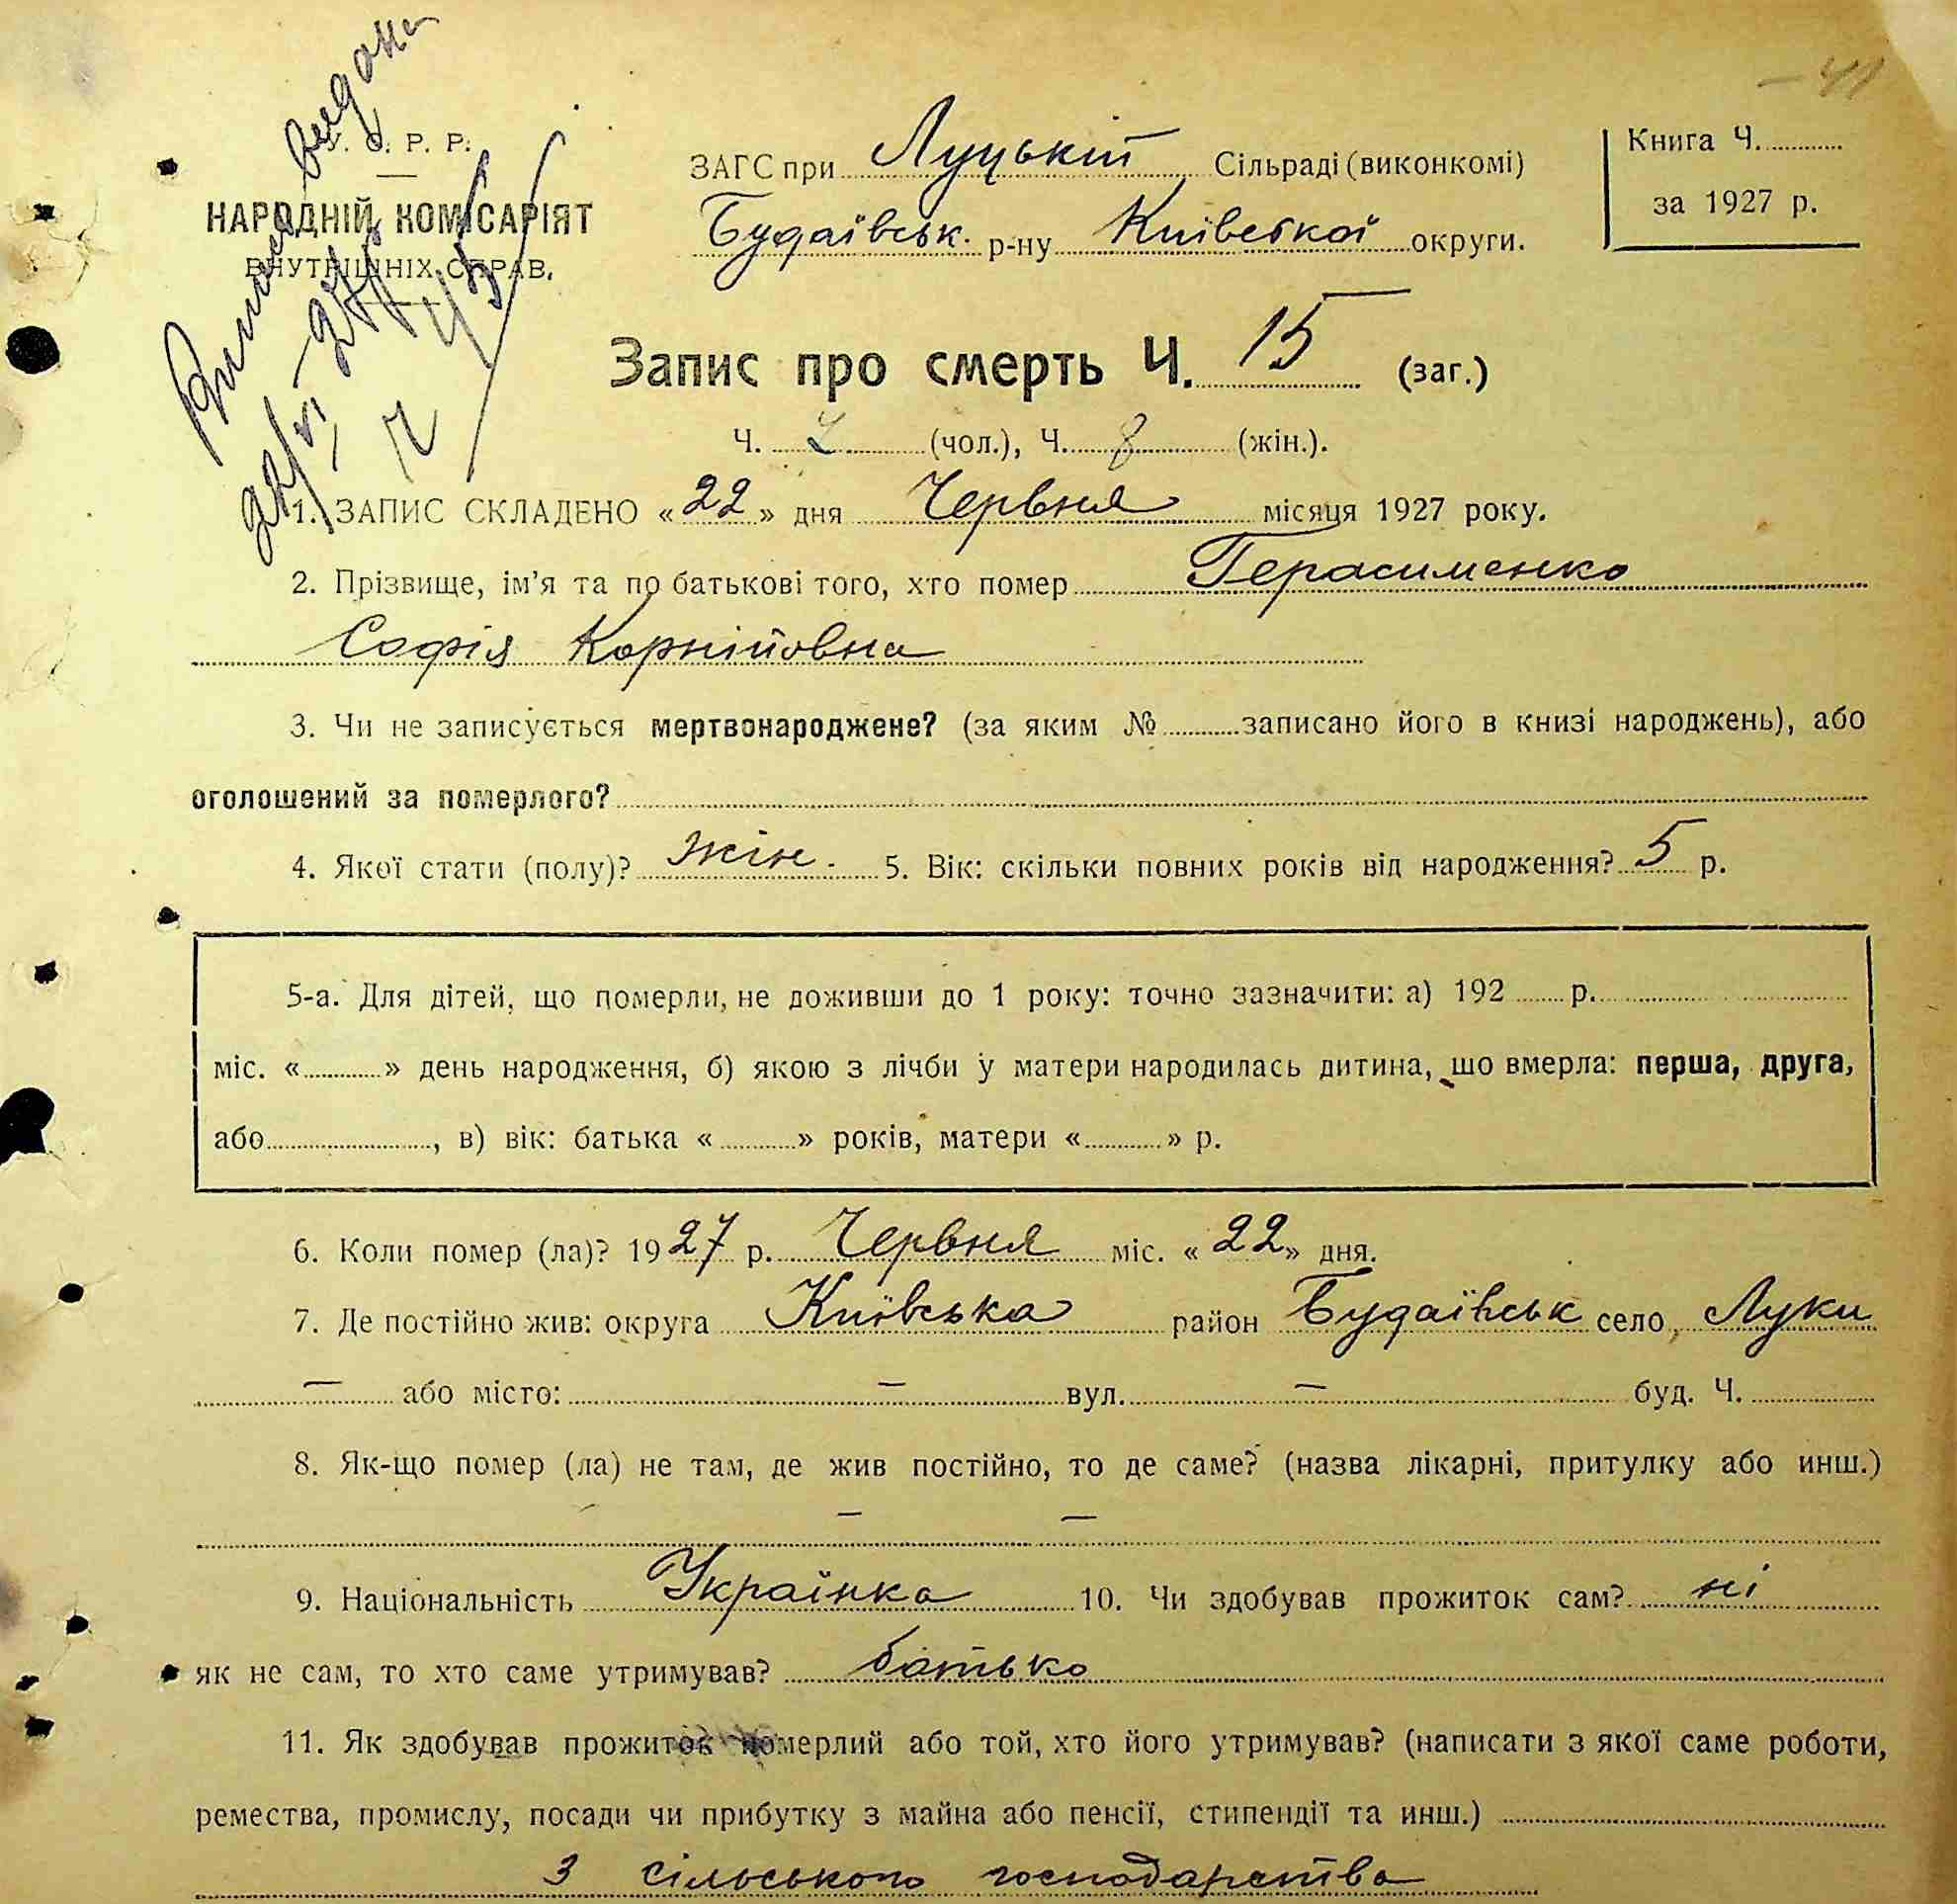 — 41
Виписку видано
22/VI–27 р.
Ч 45
У. С. Р. Р.
НАРОДНІЙ КОМІСАРІЯТ
ВНУТРІШНІХ СПРАВ.
ЗАГС при Луцькій Сільраді (виконкомі)
Будаївськ. р-ну Київської округи.
Книга Ч.
за 1927 р.
Запис про смерть Ч. 15 (заг.)
Ч. (чол.), Ч. 8 (жін.).
1. ЗАПИС СКЛАДЕНО «22» дня Червня місяця 1927 року.
2. Прізвище, ім'я та по батькові того, хто помер Герасименко
Софія Корнійовна
3. Чи не записується мертвонароджене? (за яким № записано його в книзі народжень), або
оголошений за померлого?
4. Якої стати (полу)? жін. 5. Вік: скільки повних років від народження? 5 р.
5-а. Для дітей, що померли, не доживши до 1 року: точно зазначити: а) 192 р.
міс. « » день народження, б) якою з лічби у матери народилась дитина, що вмерла: перша, друга,
або , в) вік: батька « » років, матери « » р.
6. Коли помер (ла)? 1927 р. Червня міс. «22» дня.
7. Де постійно жив: округа Київська район Будаївськ село, Луки
— або місто: — вул. — буд. Ч.
8. Як-що помер (ла) не там, де жив постійно, то де саме? (назва лікарні, притулку або инш.)
— —
9. Національність Українка 10. Чи здобував прожиток сам? ні
як не сам, то хто саме утримував? батько
11. Як здобував прожиток померлий або той, хто його утримував? (написати з якої саме роботи,
ремества, промислу, посади чи прибутку з майна або пенсії, стипендії та инш.)
З сільського господарства